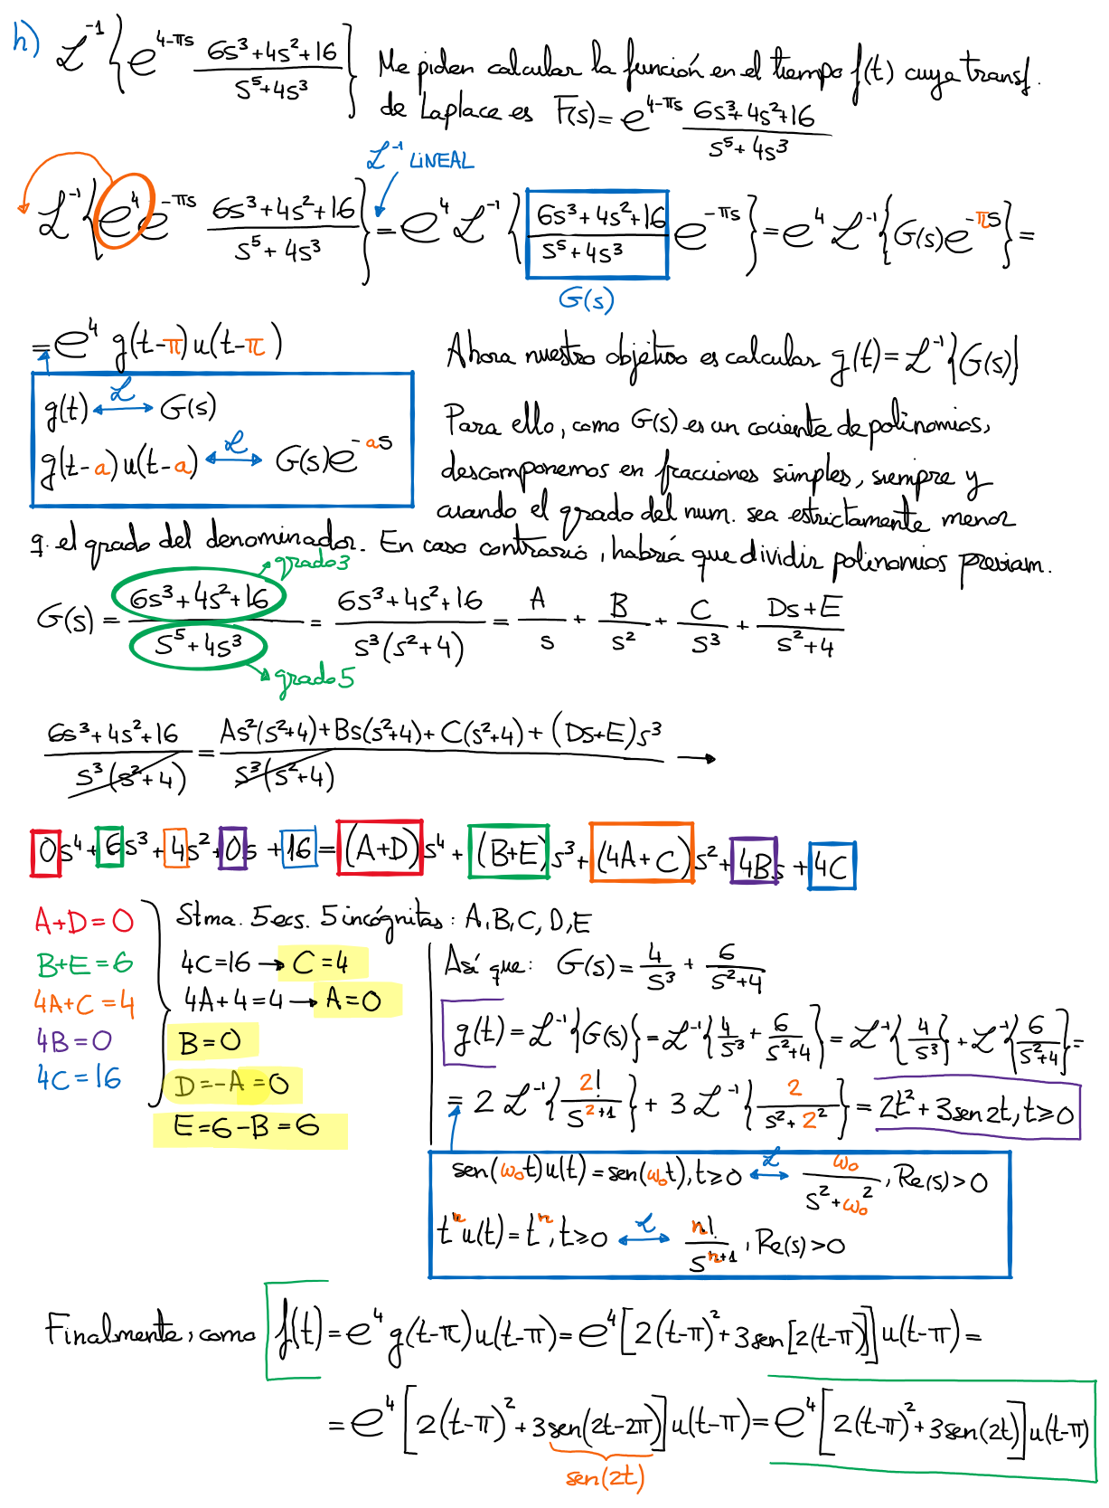 h) ℒ⁻¹{e^(4-πs) (6s³+4s²+16)/(s⁵+4s³)} Me piden calcular la función en el tiempo f(t) cuya transf.
de Laplace es F(s) = e^(4-πs) (6s³+4s²+16)/(s⁵+4s³)
ℒ⁻¹ LINEAL
ℒ⁻¹{e⁴ e^(-πs) (6s³+4s²+16)/(s⁵+4s³)} = e⁴ ℒ⁻¹{(6s³+4s²+16)/(s⁵+4s³) e^(-πs)} = e⁴ ℒ⁻¹{G(s)e^(-πs)} =
G(s)
= e⁴ g(t-π)u(t-π)
g(t) ⟷ℒ G(s)
g(t-a)u(t-a) ⟷ℒ G(s)e^(-as)
Ahora nuestro objetivo es calcular g(t) = ℒ⁻¹{G(s)}
Para ello, como G(s) es un cociente de polinomios,
descomponemos en fracciones simples, siempre y
cuando el grado del num. sea estrictamente menor
q. el grado del denominador. En caso contrario, habría que dividir polinomios previam.
grado 3
G(s) = (6s³+4s²+16)/(s⁵+4s³) = (6s³+4s²+16)/(s³(s²+4)) = A/s + B/s² + C/s³ + (Ds+E)/(s²+4)
grado 5
(6s³+4s²+16)/(s³(s²+4)) = (As²(s²+4)+Bs(s²+4)+C(s²+4)+(Ds+E)s³)/(s³(s²+4)) →
0s⁴+6s³+4s²+0s+16 = (A+D)s⁴+(B+E)s³+(4A+C)s²+4Bs+4C
A+D=0
B+E=6
4A+C=4
4B=0
4C=16
Stma. 5 ecs. 5 incógnitas: A, B, C, D, E
4C=16 → C=4
4A+4=4 → A=0
B=0
D=-A=0
E=6-B=6
Así que: G(s) = 4/s³ + 6/(s²+4)
g(t) = ℒ⁻¹{G(s)} = ℒ⁻¹{4/s³ + 6/(s²+4)} = ℒ⁻¹{4/s³} + ℒ⁻¹{6/(s²+4)} =
= 2 ℒ⁻¹{2!/s^(2+1)} + 3 ℒ⁻¹{2/(s²+2²)} = 2t²+3sen2t, t≥0
sen(ω₀t)u(t) = sen(ω₀t), t≥0 ⟷ℒ ω₀/(s²+ω₀²), Re(s)>0
tⁿu(t) = tⁿ, t≥0 ⟷ℒ n!/s^(n+1), Re(s)>0
Finalmente, como f(t) = e⁴ g(t-π)u(t-π) = e⁴[2(t-π)²+3sen[2(t-π)]]u(t-π) =
= e⁴[2(t-π)²+3sen(2t-2π)]u(t-π) = e⁴[2(t-π)²+3sen(2t)]u(t-π)
sen(2t)